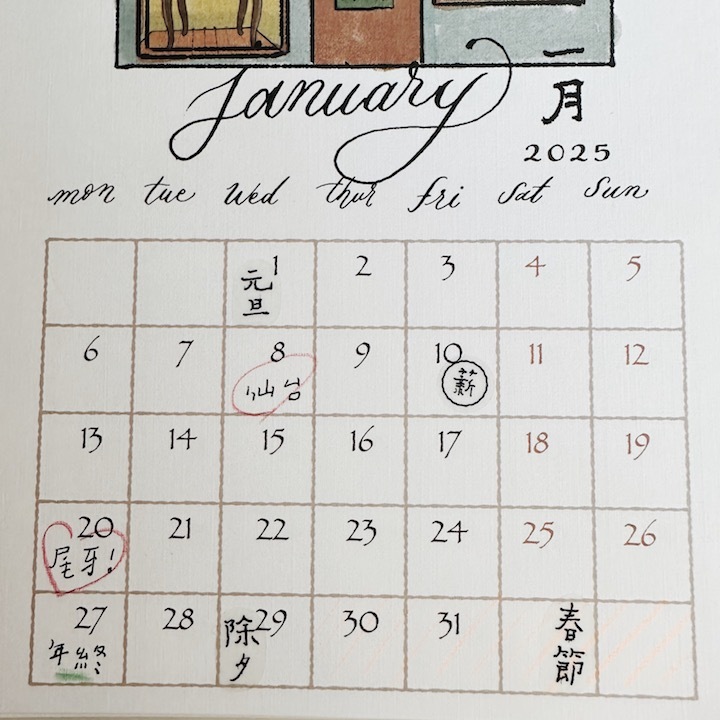 January
一月
2025
mon tue wed thur fri sat sun
1 2 3 4 5
元旦
6 7 8 9 10 11 12
仙台 薪
13 14 15 16 17 18 19
20 21 22 23 24 25 26
尾牙!
27 28 29 30 31
年終 除夕 春節